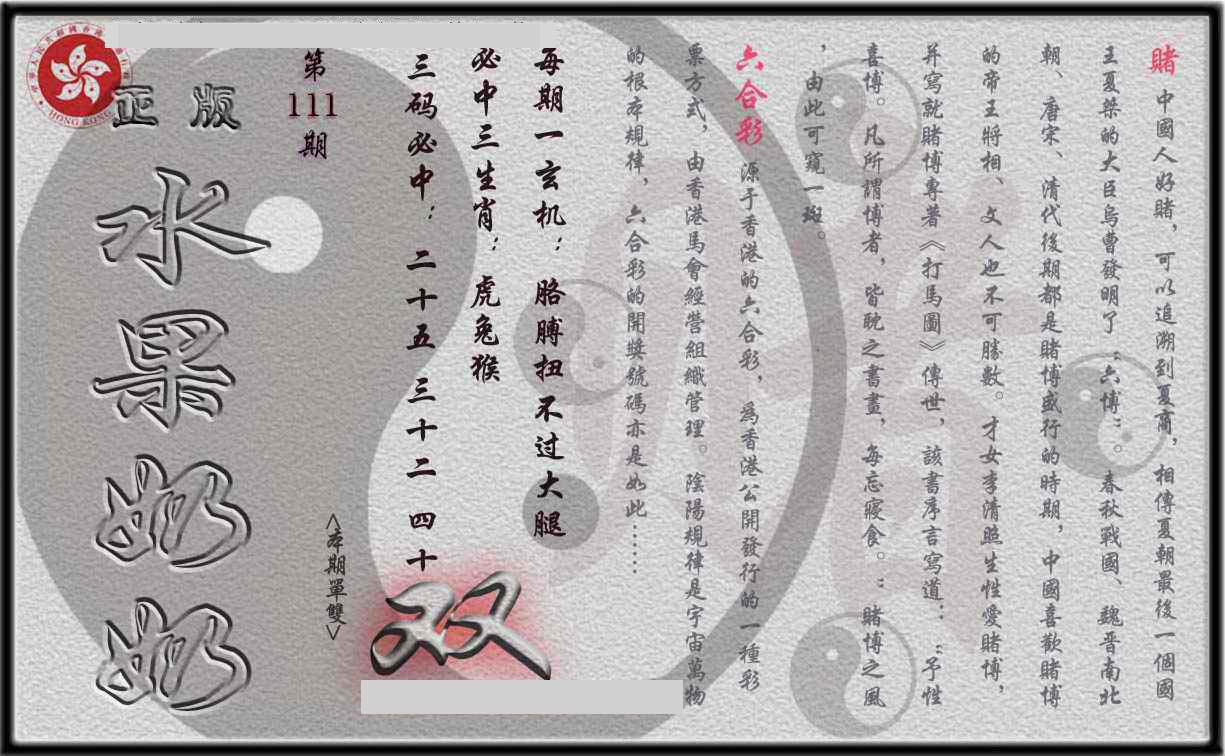 賭 中國人好賭，可以追溯到夏商，相傳夏朝最後一個國
王夏桀的大臣烏曹發明了“六博”。春秋戰國、魏晋南北
朝、唐宋、清代後期都是賭博盛行的時期，中國喜歡賭博
的帝王將相、文人也不可勝數。才女李清照生性愛賭博，
并寫就賭博專著《打馬圖》傳世，該書序言寫道：“予性
喜博。凡所謂博者，皆耽之書畫，每忘寢食。”賭博之風
，由此可窺一斑。
六合彩 源于香港的六合彩，為香港公開發行的一種彩
票方式，由香港馬會經營組織管理。陰陽規律是宇宙萬物
的根本規律，六合彩的開獎號碼亦是如此……
每期一玄机：胳膊扭不过大腿
必中三生肖：虎兔猴
三码必中：二十五 三十二 四十
双
<本期單雙>
第111期
正版
水果奶奶
HONG KONG